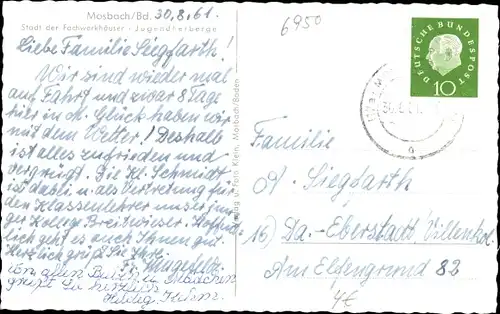 Mosbach/Bd. 30.8.61.
Stadt der Fachwerkhäuser - Jugendherberge
Liebe Familie Siegfarth!
Wir sind wieder mal
auf Fahrt und zwar 8 Tage
hier in M. Glück haben wir
mit dem Wetter! Deshalb
ist alles zufrieden und
vergnügt. Die Kl. Schmidt
ist dabei u. als Vertretung für
den Klassenlehrer unser jun-
ger Kollege Breitwieser. Hoffent-
lich geht es auch Ihnen gut.
Herzlich grüßt Sie Ihre
Von allen Buben u. Mädchen
grüßt Sie herzlich
Verlag u. Foto Klein, Mosbach/Baden
6950
DEUTSCHE BUNDESPOST
10
Familie
A. Siegfarth
16) Da.-Eberstadt, Villenkol.
Am Elfengrund 82
4€